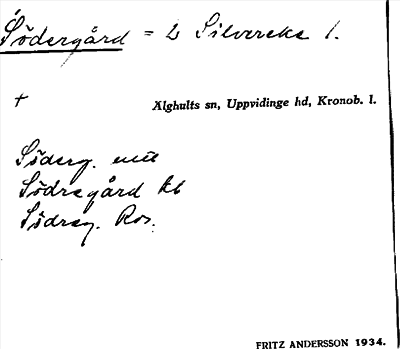 Södergård = 2 Silvereke 1.
+
Älghults sn, Uppvidinge hd, Kronob. l.
Söderg. enl
Södregård kb
Södreg. Ros.
FRITZ ANDERSSON 1934.